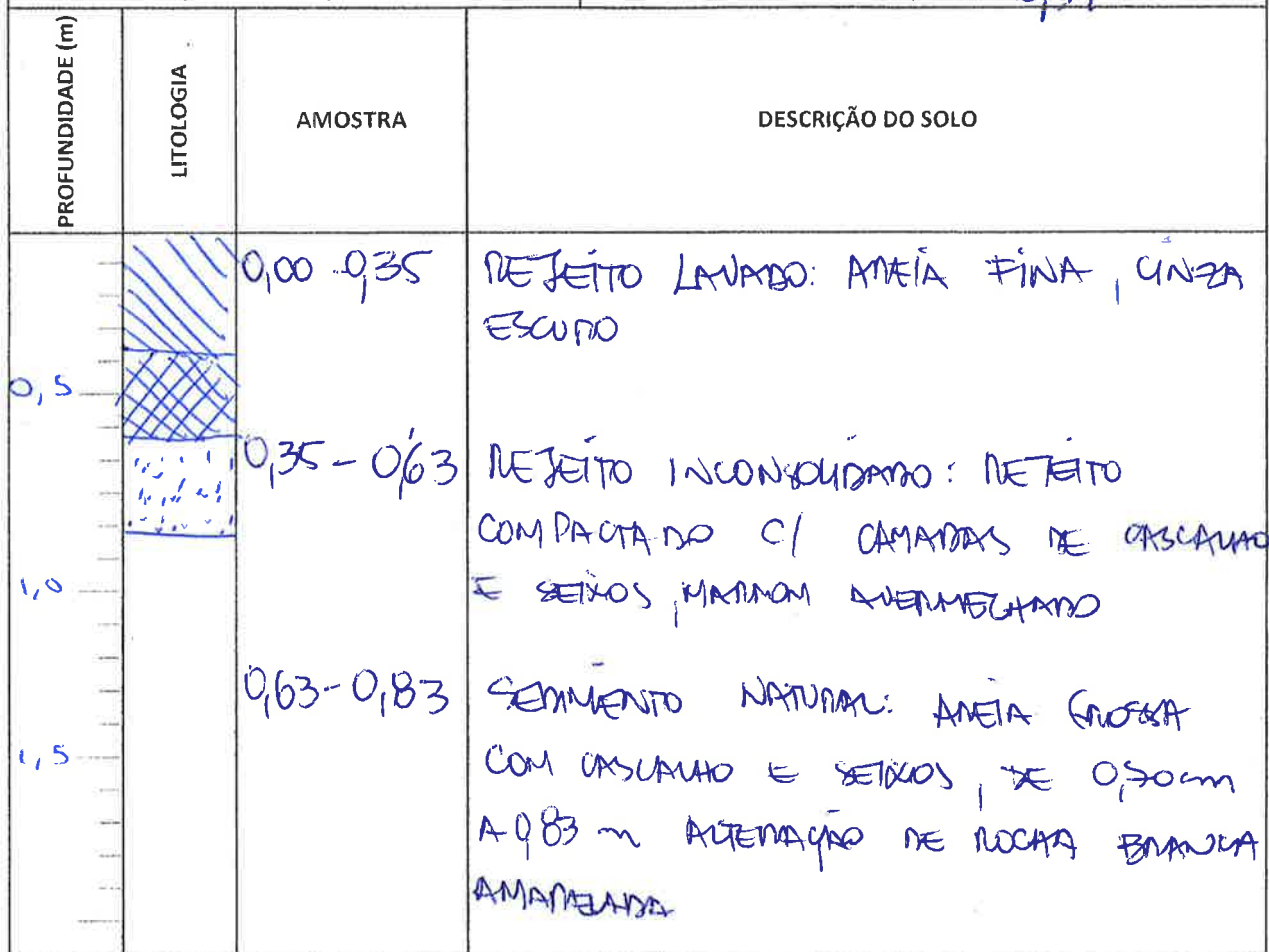 PROFUNDIDADE (m)
LITOLOGIA
AMOSTRA
DESCRIÇÃO DO SOLO
0,00 - 0,35
REJEITO LAVADO: AREIA FINA, CINZA
ESCURO
0,5
0,35 - 0,63
REJEITO INCONSOLIDADO: REJEITO
COMPACTADO C/ CAMADAS DE CASCALHO
E SEIXOS, MARROM AVERMELHADO
1,0
0,63 - 0,83
SEDIMENTO NATURAL: AREIA GROSSA
COM CASCALHO E SEIXOS, DE 0,70cm
A 0,83 m ALTERAÇÃO DE ROCHA BRANCA
AMARELADA
1,5